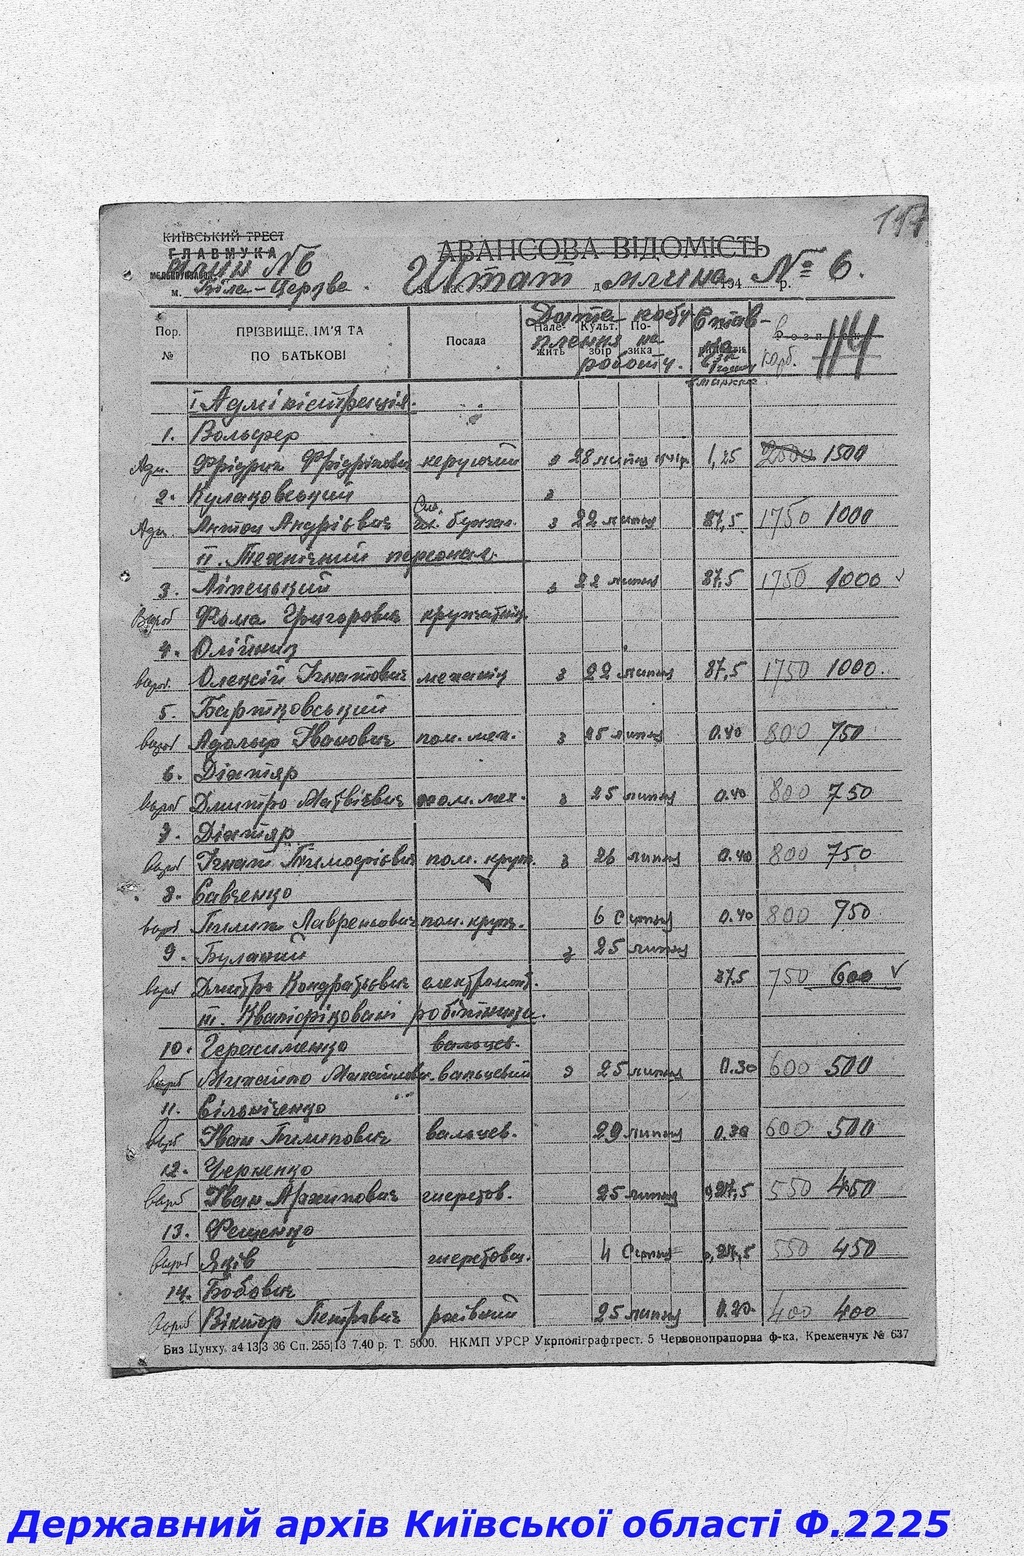 147
КИЇВСЬКИЙ ТРЕСТ
ГЛАВМУКА
млин №6
м. Біла-Церква.
АВАНСОВА ВІДОМІСТЬ
Штат млина № 6.
194 р.
Пор. №
ПРІЗВИЩЕ, ІМ'Я ТА ПО БАТЬКОВІ
Посада
Належить
Культ. збір
Позика
Дата поступлення на роботу.
Став-
карб.
114
I Адміністрація.
1. Вольфер
Адм. Фрідрих Фрідріхович керуючий з 28 липня 1,25 2500 1500
2. Кулаковський з
Адм. Антон Андрієвич бухгал. з 22 липня 87,5 1750 1000
II. Технічний персонал.
3. Ліпецький з 22 липня 87,5 1750 1000
Вироб Фома Григорович крупчатник.
4. Олійник
вироб. Олексій Ігнатович механік з 22 липня 87,5 1750 1000.
5. Бартковський
вироб Адольф Іванович пом. мех. з 25 липня 0.40 800 750
6. Дігтяр
вироб Дмитро Матвієвич пом. мех. з 25 липня 0.40 800 750
7. Дігтяр
вироб Ігнат Тимофієвич пом. круп. з 26 липня 0.40 800 750
8. Савченко
вироб Пилип Лавренович пом. круп. 6 Серпня 0.40 800 750
9. Булатий з 25 липня
вироб Дмитро Кондратієвич електромонт. 37.5 750 600
III. Кваліфіковані робітники.
10. Герасименко вальцев.
вироб Михайло Михайлович вальцевий з 25 липня 0.30 600 500
11. Сільніченко
вироб Іван Пилипович вальцев. 29 липня 0.30 600 500
12. Черненко
вироб Іван Архипович шеретов. 25 липня 0,27,5 550 450
13. Фещенко
вироб Яків шеретовщ. 4 Серпня 0,27,5 550 450
14. Бобович
вироб Віктор Петрович расівний 25 липня 0.20 400 400
Биз Цунху. а4 13|3 36 Сп. 255|13 7.40 р. Т. 5000. НКМП УРСР Укрполіграфтрест. 5 Червонопрапорна ф-ка, Кременчук № 637
Державний архів Київської області Ф.2225